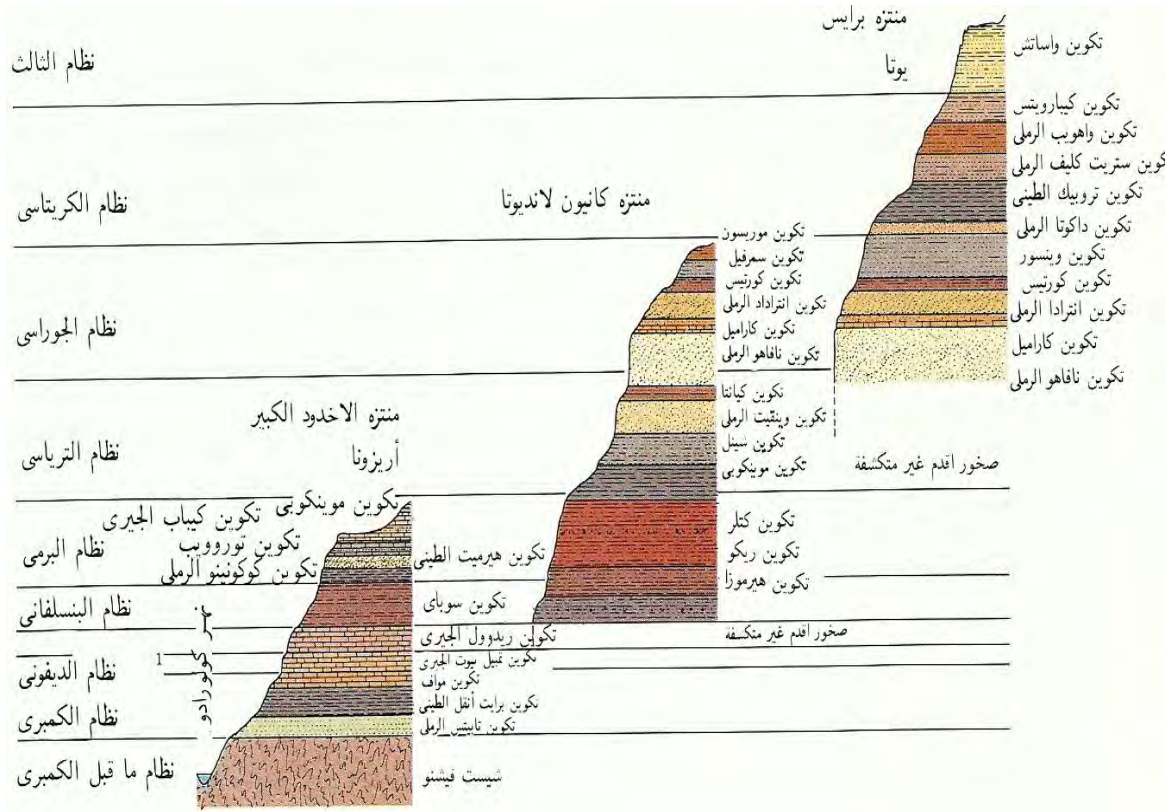 منتزه برايس
يوتا
نظام الثالث
نظام الكريتاسى
نظام الجوراسى
نظام الترياسى
نظام البرمى
نظام البنسلفانى
نظام الديفونى
نظام الكمبرى
نظام ما قبل الكمبرى
تكوين واساتش
تكوين كيبارويتس
تكوين واهويب الرملى
كوين ستريت كليف الرملى
تكوين تروبيك الطينى
تكوين داكوتا الرملى
تكوين وينسور
تكوين كورتيس
تكوين انترادا الرملى
تكوين كاراميل
تكوين نافاهو الرملى
صخور اقدم غير متكشفة
منتزه كانيون لانديوتا
تكوين موريسون
تكوين سمرفيل
تكوين كورتيس
تكوين انتراداد الرملى
تكوين كاراميل
تكوين نافاهو الرملى
تكوين كيانتا
تكوين وينقيت الرملى
تكوين شينل
تكوين موينكوبى
تكوين كتلر
تكوين ريكو
تكوين هيرموزا
صخور اقدم غير متكسفة
منتزه الاخدود الكبير
أريزونا
تكوين موينكوبى
تكوين كيباب الجيرى
تكوين توروويب
تكوين كوكونينو الرملى
تكوين هيرميت الطينى
تكوين سوباى
تكوين ريدوول الجيرى
تكوين تمبل بيوت الجيرى
تكوين مواف
تكوين برايت أنقل الطينى
تكوين تابيتس الرملى
شيست فيشنو
نهر كولورادو
1